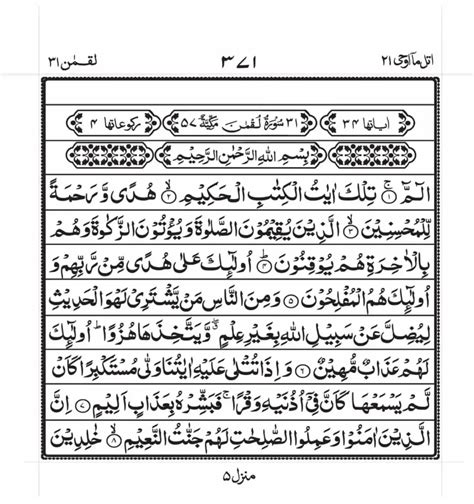 اتل مآ اوحی ٢١ ٣٧١ لقمٰن ٣١
اٰیاتها ٣٤ ٣١ سُوْرَةُ لُقْمٰنَ مَكِّيَّةٌ ٥٧ ركوعاتها ٤
بِسْمِ اللّٰهِ الرَّحْمٰنِ الرَّحِیْمِ
الٓمّٓ ۚ﴿١﴾ تِلْكَ اٰیٰتُ الْكِتٰبِ الْحَكِیْمِ ۙ﴿٢﴾ هُدًی وَّ رَحْمَةً
لِّلْمُحْسِنِیْنَ ۙ﴿٣﴾ الَّذِیْنَ یُقِیْمُوْنَ الصَّلٰوةَ وَ یُؤْتُوْنَ الزَّكٰوةَ وَ هُمْ
بِالْاٰخِرَةِ هُمْ یُوْقِنُوْنَ ؕ﴿٤﴾ اُولٰٓىِٕكَ عَلٰی هُدًی مِّنْ رَّبِّهِمْ وَ
اُولٰٓىِٕكَ هُمُ الْمُفْلِحُوْنَ ﴿٥﴾ وَ مِنَ النَّاسِ مَنْ یَّشْتَرِیْ لَهْوَ الْحَدِیْثِ
لِیُضِلَّ عَنْ سَبِیْلِ اللّٰهِ بِغَیْرِ عِلْمٍ ۖۗ وَّ یَتَّخِذَهَا هُزُوًا ؕ اُولٰٓىِٕكَ
لَهُمْ عَذَابٌ مُّهِیْنٌ ﴿٦﴾ وَ اِذَا تُتْلٰی عَلَیْهِ اٰیٰتُنَا وَلّٰی مُسْتَكْبِرًا كَاَنْ
لَّمْ یَسْمَعْهَا كَاَنَّ فِیْۤ اُذُنَیْهِ وَقْرًا ۚ فَبَشِّرْهُ بِعَذَابٍ اَلِیْمٍ ﴿٧﴾ اِنَّ
الَّذِیْنَ اٰمَنُوْا وَ عَمِلُوا الصّٰلِحٰتِ لَهُمْ جَنّٰتُ النَّعِیْمِ ۙ﴿٨﴾ خٰلِدِیْنَ
منزل ٥